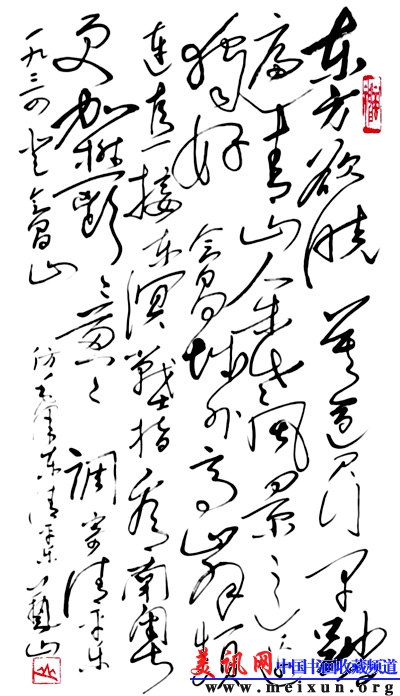 东方欲晓 莫道君行早 踏
遍青山人未老 风景这边
独好 会昌城外高峰颠
连直接东溟 戰士指看南粤
更加欝欝葱々 调寄清平乐
一九三四 登会昌山
仿毛泽东清平乐
美讯网 中国书画收藏频道
www.meixun.org